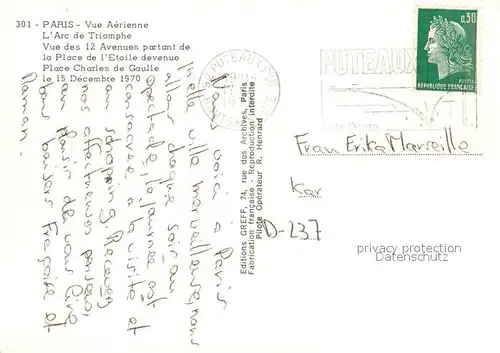 301 - PARIS - Vue Aérienne
L'Arc de Triomphe
Vue des 12 Avenues partant de
la Place de l'Etoile devenue
Place Charles de Gaulle
le 15 Décembre 1970
0,30
POSTES
REPUBLIQUE FRANÇAISE
PUTEAUX
PUTEAUX
Frau Erika Marseille
D-237
privacy protection
Datenschutz
Editions GREFF, 74, rue des Archives, Paris
Fabrication française - Reproduction Interdite
Pilote Opérateur R. Henrard
Nous voici à Paris
ville merveilleuse, nous
allons chaque soir au
spectacle, la journée est
consacrée à la visite et
au shopping. Recevez
nos affectueuses pensées,
au plaisir de vous lire
bons baisers Françoise et